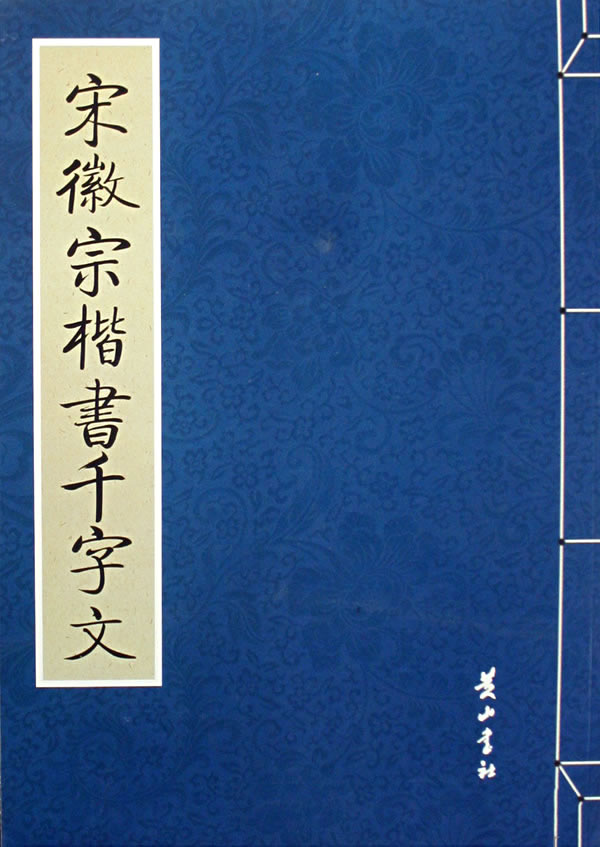 宋徽宗楷書千字文
黄山书社